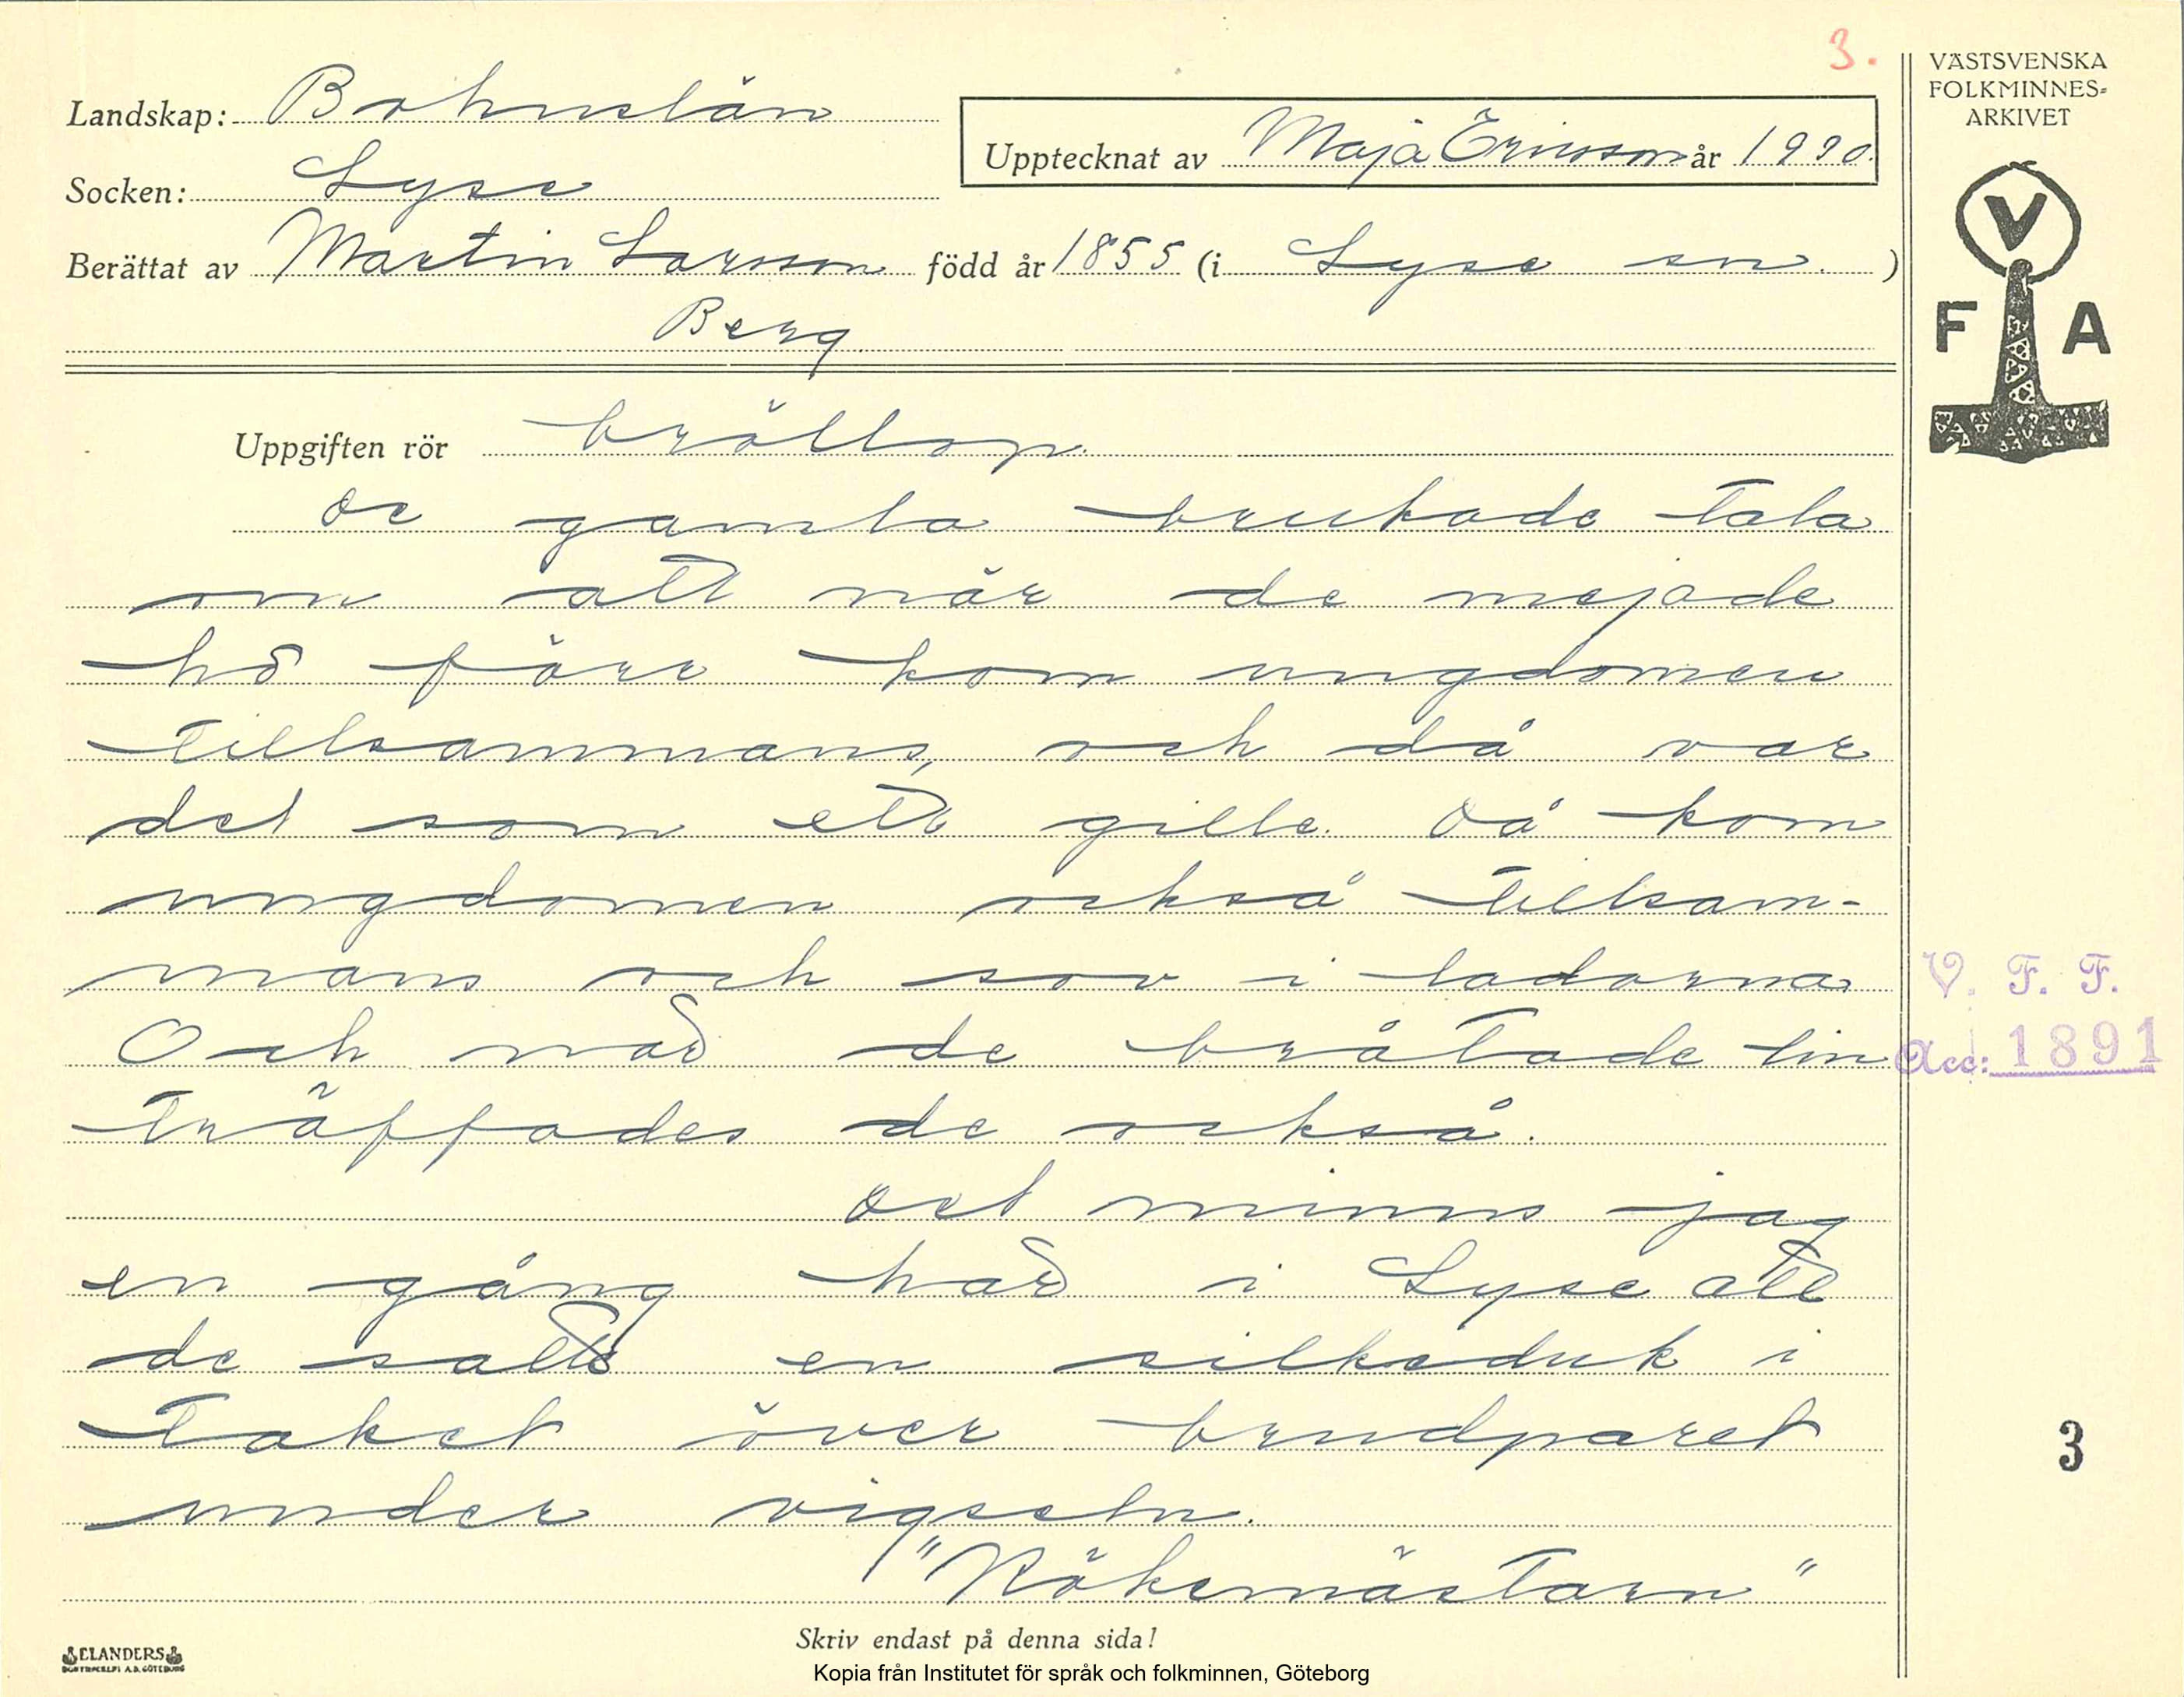 3.
Landskap: Bohuslän
Upptecknat av Maja Ericsson år 1930
Socken: Lyse
Berättat av Martin Larsson född år 1855 (i Lyse sn. )
Berg
VÄSTSVENSKA
FOLKMINNES=
ARKIVET
V
F A
Uppgiften rör bröllop.
De gamla brukade tala
om att när de mejade
hö förr kom ungdomen
tillsammans, och då var
det som ett gille. Då kom
ungdomen också tillsam-
mans och sov i ladorna
Och när de bråtade lin
träffades de också.
Det minns jag
en gång här i Lyse att
de satte en silkeduk i
taket över brudparet
under vigseln.
"Rökemästarn"
V. F. F.
Acc: 1891
3
Skriv endast på denna sida!
ELANDERS
BOKTRYCKERI A.B. GÖTEBORG
Kopia från Institutet för språk och folkminnen, Göteborg